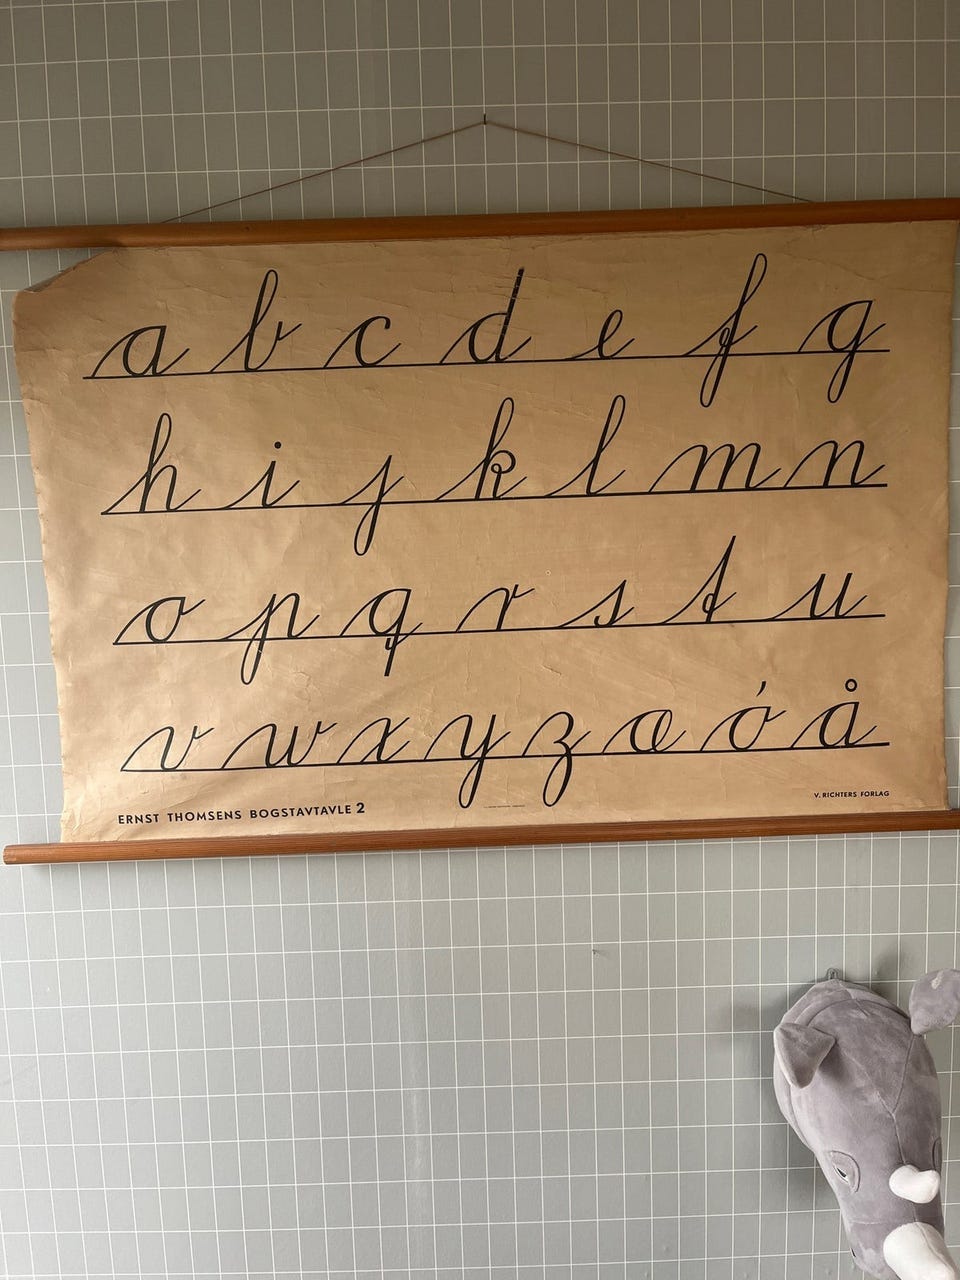 a b c d e f g
h i j k l m n
o p q r s t u
v w x y z æ ó å
ERNST THOMSENS BOGSTAVTAVLE 2
V. RICHTERS FORLAG